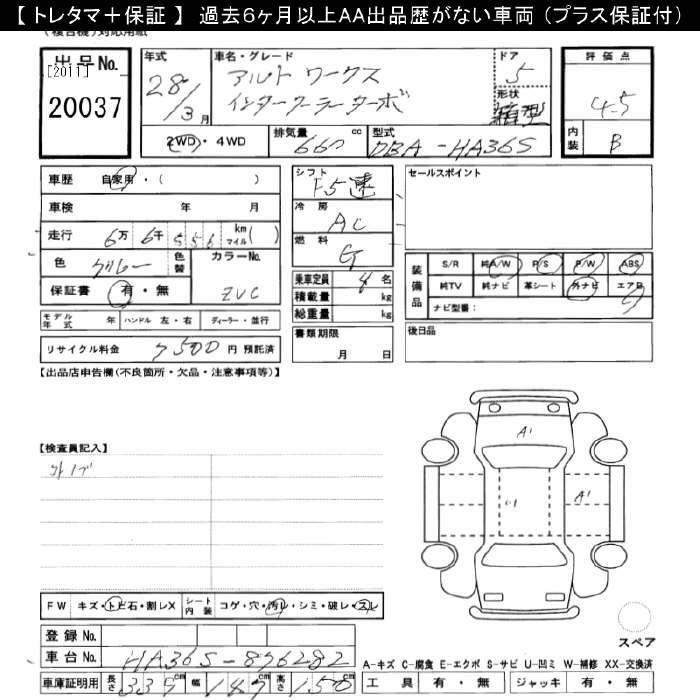 【 トレタマ＋保証 】 過去６ヶ月以上ＡＡ出品歴がない車両 （プラス保証付）
(複合機)対応用紙
出品No. [2011] 20037
年式 28/3月
車名・グレード アルト ワークス インタークーラーターボ
ドア 5
形状 箱型
評価点 4.5
内装 B
2WD・4WD
排気量 660 cc
型式 DBA-HA36S
車歴 自家用・( )
車検 年 月
走行 6万 6千 5 5 6 km マイル( )
色 グレー 色替
カラーNo. ZVC
保証書 有・無
シフト F5速
冷房 AC
燃料 G
乗車定員 4 名
積載量 kg
総重量 kg
書類期限 月 日
セールスポイント
装備品 S/R 純A/W P/S P/W ABS
純TV 純ナビ 革シート 外ナビ エアB
ナビ型番:
後日品
モデル年式 年 ハンドル 左・右 ディーラー・並行
リサイクル料金 7500 円 預託済
【出品店申告欄(不良箇所・欠品・注意事項等)】
【検査員記入】
外ノブ
A1
A1
FW キズ・トビ石・割レX シート内装 コゲ・穴・汚レ・シミ・破レ・スレ
登録 No.
車台 No. HA36S-896282
車庫証明用 長さ 339 cm 幅 147 cm 高さ 150 cm
スペア
A-キズ C-腐食 E-エクボ S-サビ U-凹ミ W-補修 XX-交換済
工具 有・無 ジャッキ 有・無